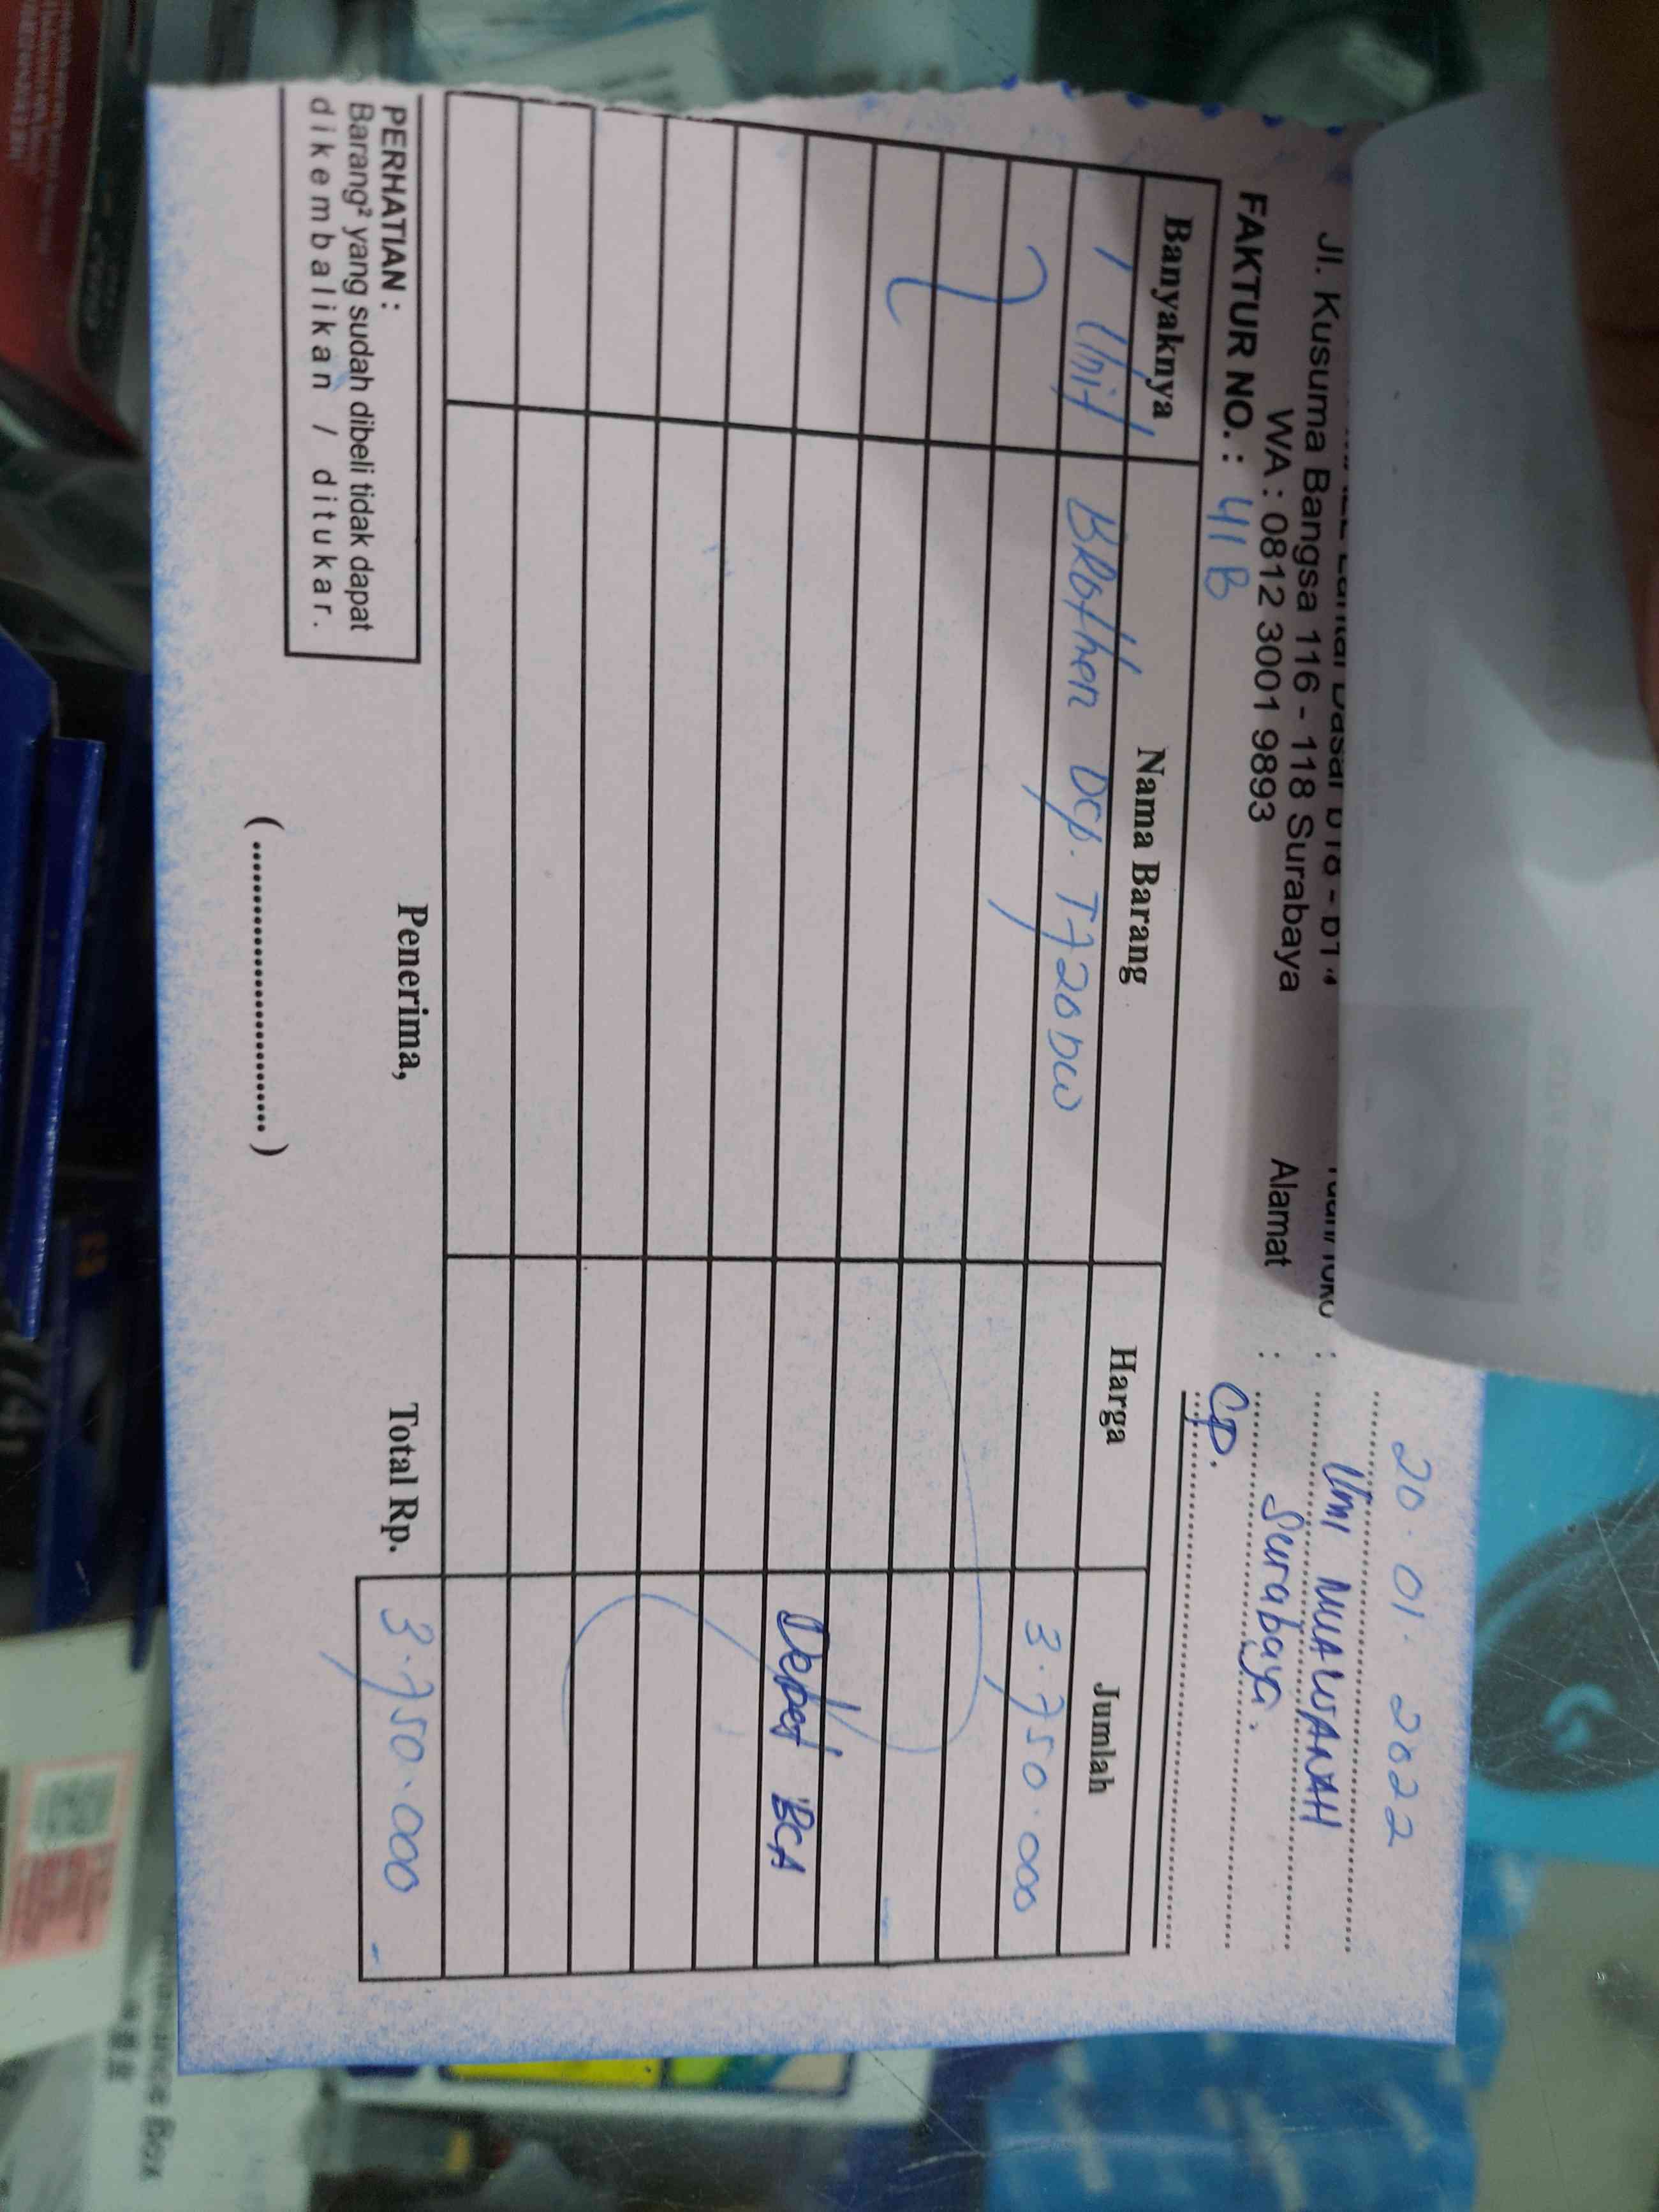 20. 01. 2022
Lantai Dasar D18 -
Jl. Kusuma Bangsa 116 - 118 Surabaya
: Umi MUAWANAH
WA : 0812 3001 9893
Alamat : Surabaya.
FAKTUR NO. : 41B
CP.
Banyaknya Nama Barang Harga Jumlah
1 Unit BRother Dcp. T720DW 3.750.000
Debet BCA
PERHATIAN :
Barang² yang sudah dibeli tidak dapat
dikembalikan / ditukar.
Penerima,
(.................................)
Total Rp. 3.750.000